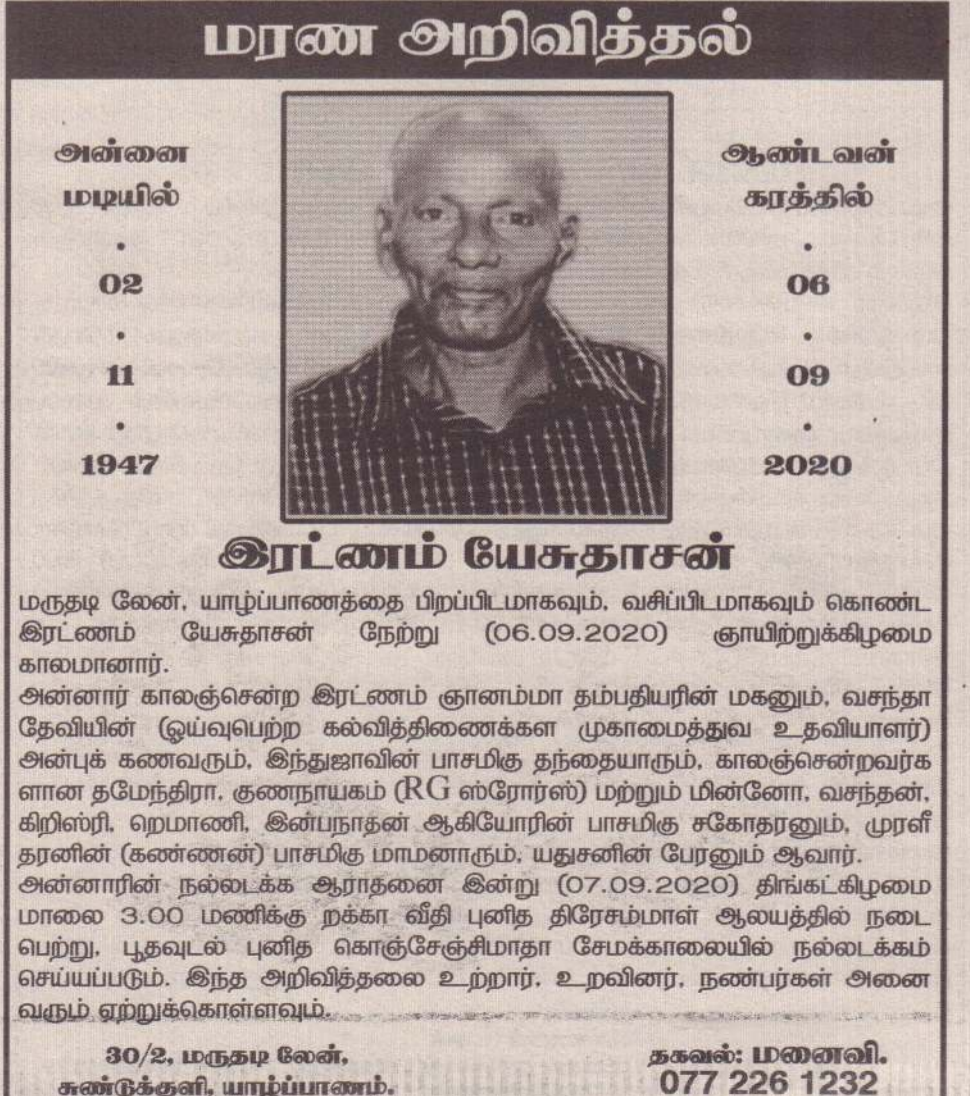 மரண அறிவித்தல்
அன்னை
மடியில்
.
02
.
11
.
1947
ஆண்டவன்
கரத்தில்
.
06
.
09
.
2020
இரட்ணம் யேசுதாசன்
மருதடி லேன், யாழ்ப்பாணத்தை பிறப்பிடமாகவும், வசிப்பிடமாகவும் கொண்ட
இரட்ணம் யேசுதாசன் நேற்று (06.09.2020) ஞாயிற்றுக்கிழமை
காலமானார்.
அன்னார் காலஞ்சென்ற இரட்ணம் ஞானம்மா தம்பதியரின் மகனும், வசந்தா
தேவியின் (ஓய்வுபெற்ற கல்வித்திணைக்கள முகாமைத்துவ உதவியாளர்)
அன்புக் கணவரும், இந்துஜாவின் பாசமிகு தந்தையாரும், காலஞ்சென்றவர்க
ளான தமேந்திரா, குணநாயகம் (RG ஸ்ரோர்ஸ்) மற்றும் மின்னோ, வசந்தன்,
கிறிஸ்ரி, றெமாணி, இன்பநாதன் ஆகியோரின் பாசமிகு சகோதரனும், முரளீ
தரனின் (கண்ணன்) பாசமிகு மாமனாரும், யதுசனின் பேரனும் ஆவார்.
அன்னாரின் நல்லடக்க ஆராதனை இன்று (07.09.2020) திங்கட்கிழமை
மாலை 3.00 மணிக்கு றக்கா வீதி புனித திரேசம்மாள் ஆலயத்தில் நடை
பெற்று, பூதவுடல் புனித கொஞ்சேஞ்சிமாதா சேமக்காலையில் நல்லடக்கம்
செய்யப்படும். இந்த அறிவித்தலை உற்றார், உறவினர், நண்பர்கள் அனை
வரும் ஏற்றுக்கொள்ளவும்.
30/2, மருதடி லேன்,
சுண்டுக்குளி, யாழ்ப்பாணம்.
தகவல்: மனைவி.
077 226 1232